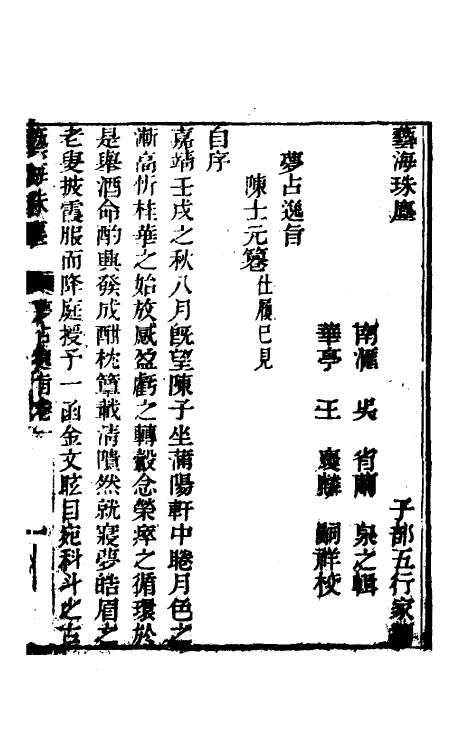 藝海珠塵 子部五行家類
南滙 吳省蘭 泉之輯
華亭 王 嗣祥校
夢占逸旨
陳士元纂 仕履巳見
自序
嘉靖壬戌之秋八月旣望陳子坐蒲陽軒中睠月色之
漸高忻桂華之始放感盈虧之轉轂念榮瘁之循環於
是舉酒命酌興發成酣枕簟載清隤然就寢夢皓眉之
老叟披霞服而降庭授予一函金文眩目宛科斗之古
藝海珠塵 夢占逸旨卷一 一